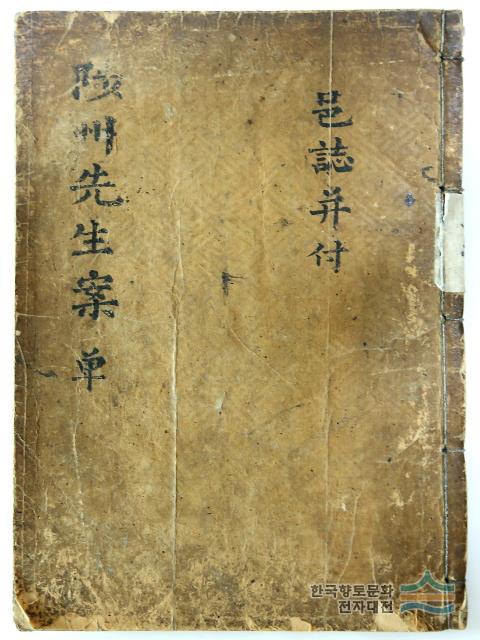 邑誌并付
陟州先生案 单
한국향토문화
전자대전